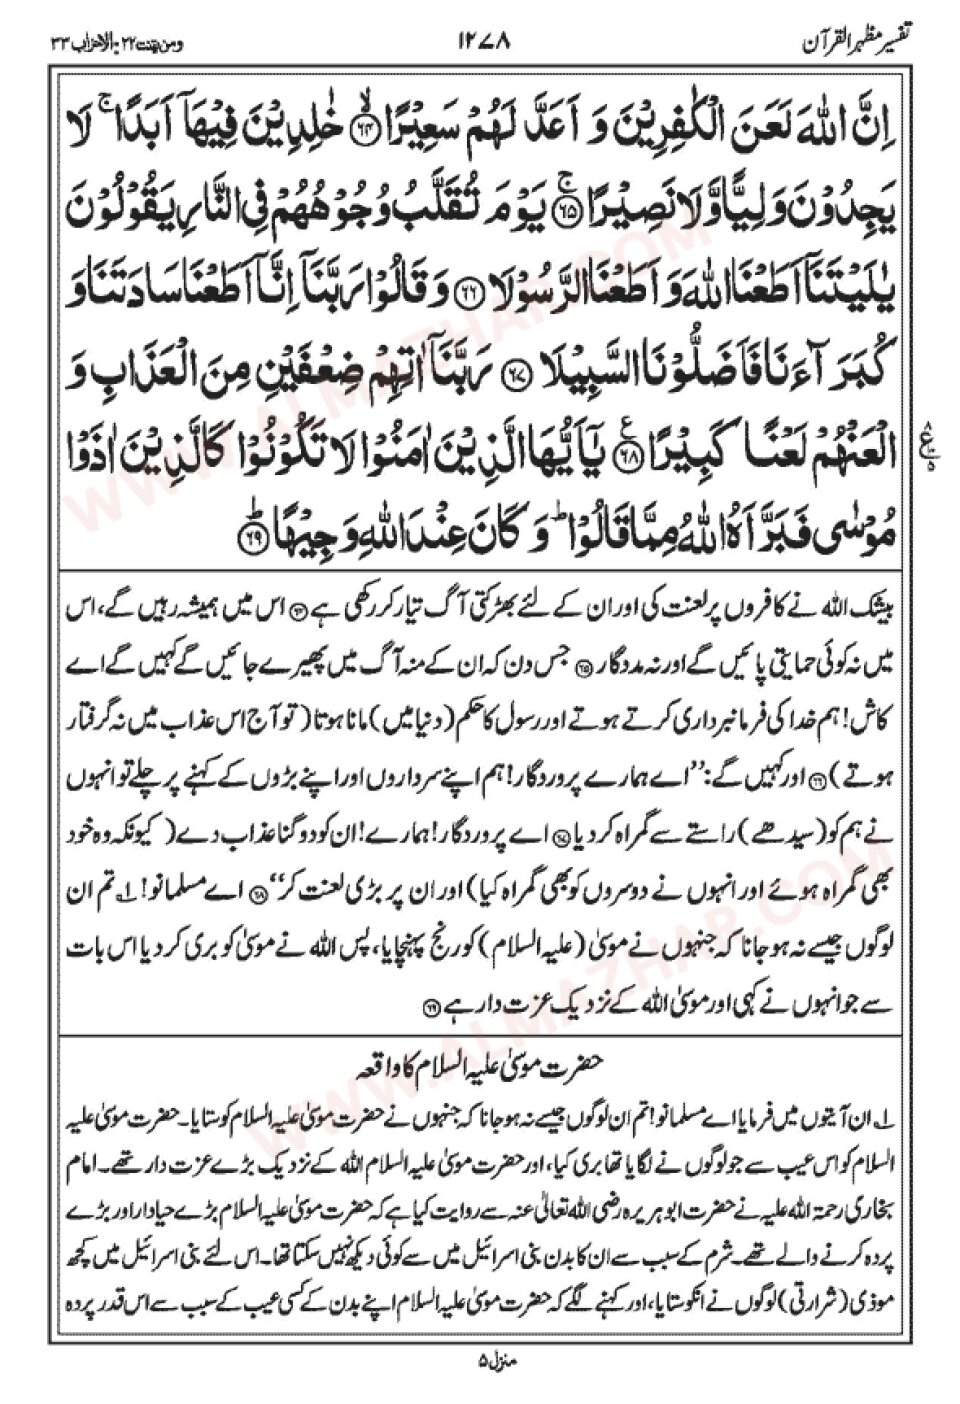 تفسیر مظہر القرآن
۱۲۷۸
ومن یقنت ۲۲ : الاحزاب ۳۳
اِنَّ اللّٰهَ لَعَنَ الْكٰفِرِيْنَ وَ اَعَدَّ لَهُمْ سَعِيْرًا ۙ﴿۶۴﴾ خٰلِدِيْنَ فِيْهَاۤ اَبَدًا ۚ لَا
يَجِدُوْنَ وَلِيًّا وَّلَا نَصِيْرًا ۚ﴿۶۵﴾ يَوْمَ تُقَلَّبُ وُجُوْهُهُمْ فِي النَّارِ يَقُوْلُوْنَ
يٰلَيْتَنَاۤ اَطَعْنَا اللّٰهَ وَ اَطَعْنَا الرَّسُوْلَا ﴿۶۶﴾ وَ قَالُوْا رَبَّنَاۤ اِنَّاۤ اَطَعْنَا سَادَتَنَا وَ
كُبَرَآءَنَا فَاَضَلُّوْنَا السَّبِيْلَا ﴿۶۷﴾ رَبَّنَاۤ اٰتِهِمْ ضِعْفَيْنِ مِنَ الْعَذَابِ وَ
الْعَنْهُمْ لَعْنًا كَبِيْرًا ۠﴿۶۸﴾ يٰۤاَيُّهَا الَّذِيْنَ اٰمَنُوْا لَا تَكُوْنُوْا كَالَّذِيْنَ اٰذَوْا
مُوْسٰى فَبَرَّاَهُ اللّٰهُ مِمَّا قَالُوْا ؕ وَ كَانَ عِنْدَ اللّٰهِ وَجِيْهًا ؕ﴿۶۹﴾
بیشک اللہ نے کافروں پر لعنت کی اور ان کے لئے بھڑکتی آگ تیار کر رکھی ہے ﴿۶۴﴾ اس میں ہمیشہ رہیں گے، اس
میں نہ کوئی حمایتی پائیں گے اور نہ مددگار ﴿۶۵﴾ جس دن کہ ان کے منہ آگ میں پھیرے جائیں گے کہیں گے اے
کاش! ہم خدا کی فرمانبرداری کرتے ہوتے اور رسول کا حکم (دنیا میں) مانا ہوتا (تو آج اس عذاب میں نہ گرفتار
ہوتے) ﴿۶۶﴾ اور کہیں گے: ’’اے ہمارے پروردگار! ہم اپنے سرداروں اور اپنے بڑوں کے کہنے پر چلے تو انہوں
نے ہم کو (سیدھے) راستے سے گمراہ کر دیا ﴿۶۷﴾ اے پروردگار! ہمارے! ان کو دوگنا عذاب دے (کیونکہ وہ خود
بھی گمراہ ہوئے اور انہوں نے دوسروں کو بھی گمراہ کیا) اور ان پر بڑی لعنت کر‘‘ ﴿۶۸﴾ اے مسلمانو! ۱؎ تم ان
لوگوں جیسے نہ ہو جانا کہ جنہوں نے موسیٰ (علیہ السلام) کو رنج پہنچایا، پس اللہ نے موسیٰ کو بری کر دیا اس بات
سے جو انہوں نے کہی اور موسیٰ اللہ کے نزدیک عزت دار ہے ﴿۶۹﴾
حضرت موسیٰ علیہ السلام کا واقعہ
۱؎ ان آیتوں میں فرمایا اے مسلمانو! تم ان لوگوں جیسے نہ ہو جانا کہ جنہوں نے حضرت موسیٰ علیہ السلام کو ستایا۔ حضرت موسیٰ علیہ
السلام کو اس عیب سے جو لوگوں نے لگایا تھا بری کیا، اور حضرت موسیٰ علیہ السلام اللہ کے نزدیک بڑے عزت دار تھے۔ امام
بخاری رحمۃ اللہ علیہ نے حضرت ابوہریرہ رضی اللہ تعالیٰ عنہ سے روایت کیا ہے کہ حضرت موسیٰ علیہ السلام بڑے حیادار اور بڑے
پردہ کرنے والے تھے۔ شرم کے سبب سے ان کا بدن بنی اسرائیل میں سے کوئی دیکھ نہیں سکتا تھا۔ اس لئے بنی اسرائیل میں کچھ
موذی (شرارتی) لوگوں نے انکو ستایا، اور کہنے لگے کہ حضرت موسیٰ علیہ السلام اپنے بدن کے کسی عیب کے سبب سے اس قدر پردہ
منزل ۵
WWW.ALMAZHAR.COM
WWW.ALMAZHAR.COM